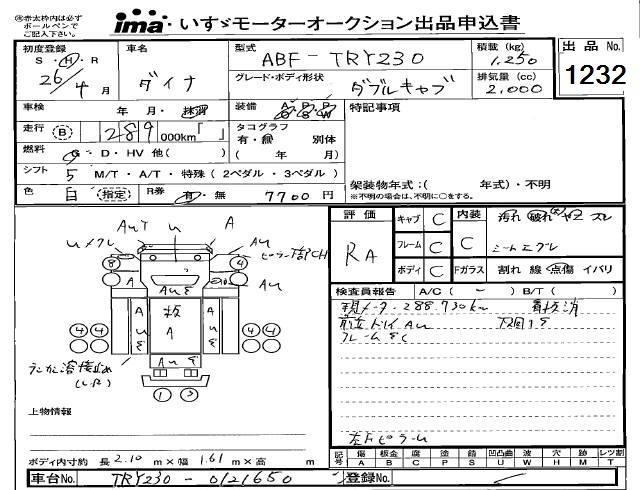 ※赤太枠内は必ず
ボールペンで
ご記入下さい。
ima いすゞモーターオークション出品申込書
初度登録
S・H・R
26 4 月
車名
ダイナ
型式
ABF-TRY230
グレード・ボディ形状
ダブルキャブ
積載 (kg)
1,250
排気量 (cc)
2,000
出品 No.
1232
車検 年・月・抹消
装備 A・P・P
C・S・W
特記事項
走行 B 289 000km「 」
タコグラフ
有・無 別体
( 年 月)
燃料 G・D・HV 他( )
シフト 5 M/T・A/T・特殊(2ペダル・3ペダル)
色 白 (指定) R券 有・無 7700 円
架装物年式:( 年式)・不明
※不明の場合は、不明に○をする。
評価 RA
キャブ C
フレーム C
ボディ C
内装 C
汚れ 破れ コゲ スレ
シートエグレ
Fガラス 割れ 線 点傷 イバリ
検査員報告 A/C( ー ) B/T( )
現メーター 288,730km
フレームSC
左FピラーU
AUT U A
Uメクレ AU
ピラー下部CH
8 4
AU AUS
A 板 A
4 4 4 4
AUS
ランカン溶接止め
(L,R)
1 3
上物情報
ボディ内寸約 長 2.10 m×幅 1.61 m×高 m
記号 傷 A 板金 B 腐 C 塗 P 錆 S 凹凸曲 U 波 W 穴 H 跡 M レンズ割 T
車台No. TRY230-0121650
登録No.